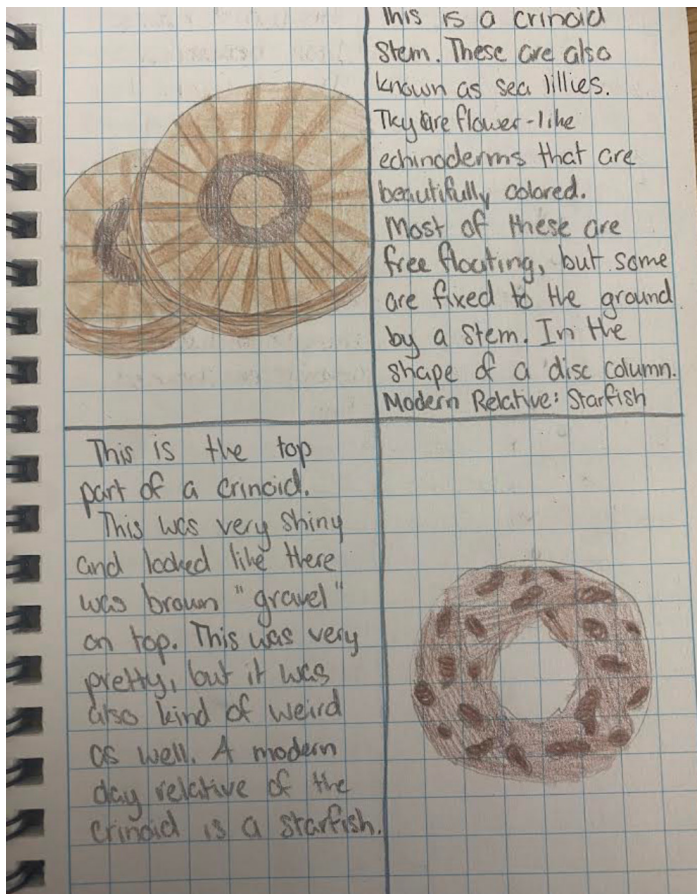 This is a crinoid
Stem. These are also
known as sea lillies.
They are flower-like
echinoderms that are
beautifully colored.
Most of these are
free floating, but some
are fixed to the ground
by a stem. In the
shape of a disc column.
Modern Relative: Starfish
This is the top
part of a crinoid.
This was very shiny
and looked like there
was brown "gravel"
on top. This was very
pretty, but it was
also kind of weird
as well. A modern
day relative of the
crinoid is a starfish.